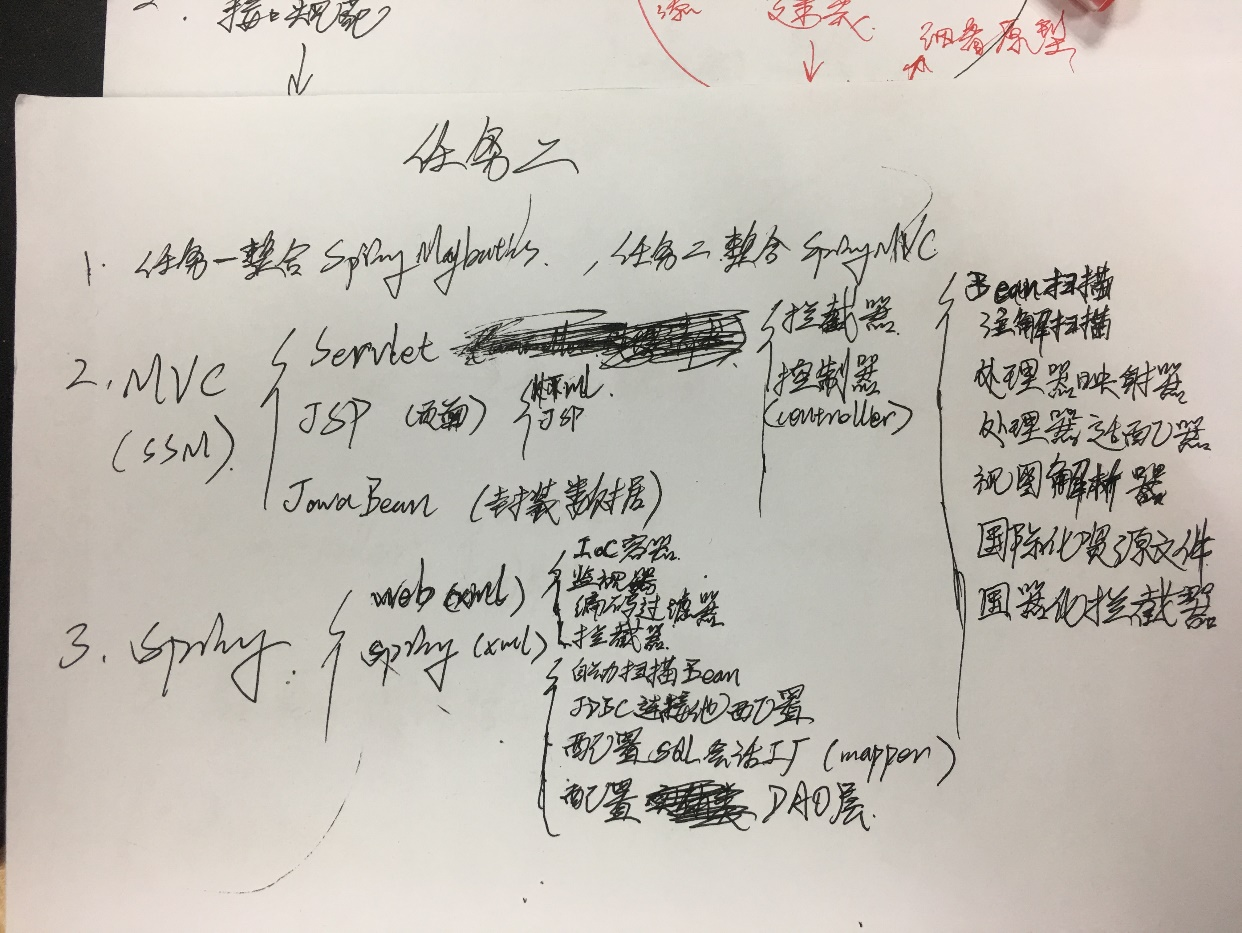 接口规范
文案类
细看原型
任务二
1. 任务一整合 Spring Maybatis. , 任务二整合 SpringMVC
2. MVC
(SSM).
Servlet
JSP (页面)
JSP
JavaBean (封装数据)
拦截器
控制器
(controller)
Bean扫描
注解扫描
处理器映射器
处理器适配器
视图解析器
国际化资源文件
国器化拦截器
3. Spring.
web (xml)
IoC容器
监视器
编码过滤器
拦截器
Spring (xml)
自动扫描Bean
JDBC连接池配置
配置SQL会话工厂 (mapper)
配置 DAO层.